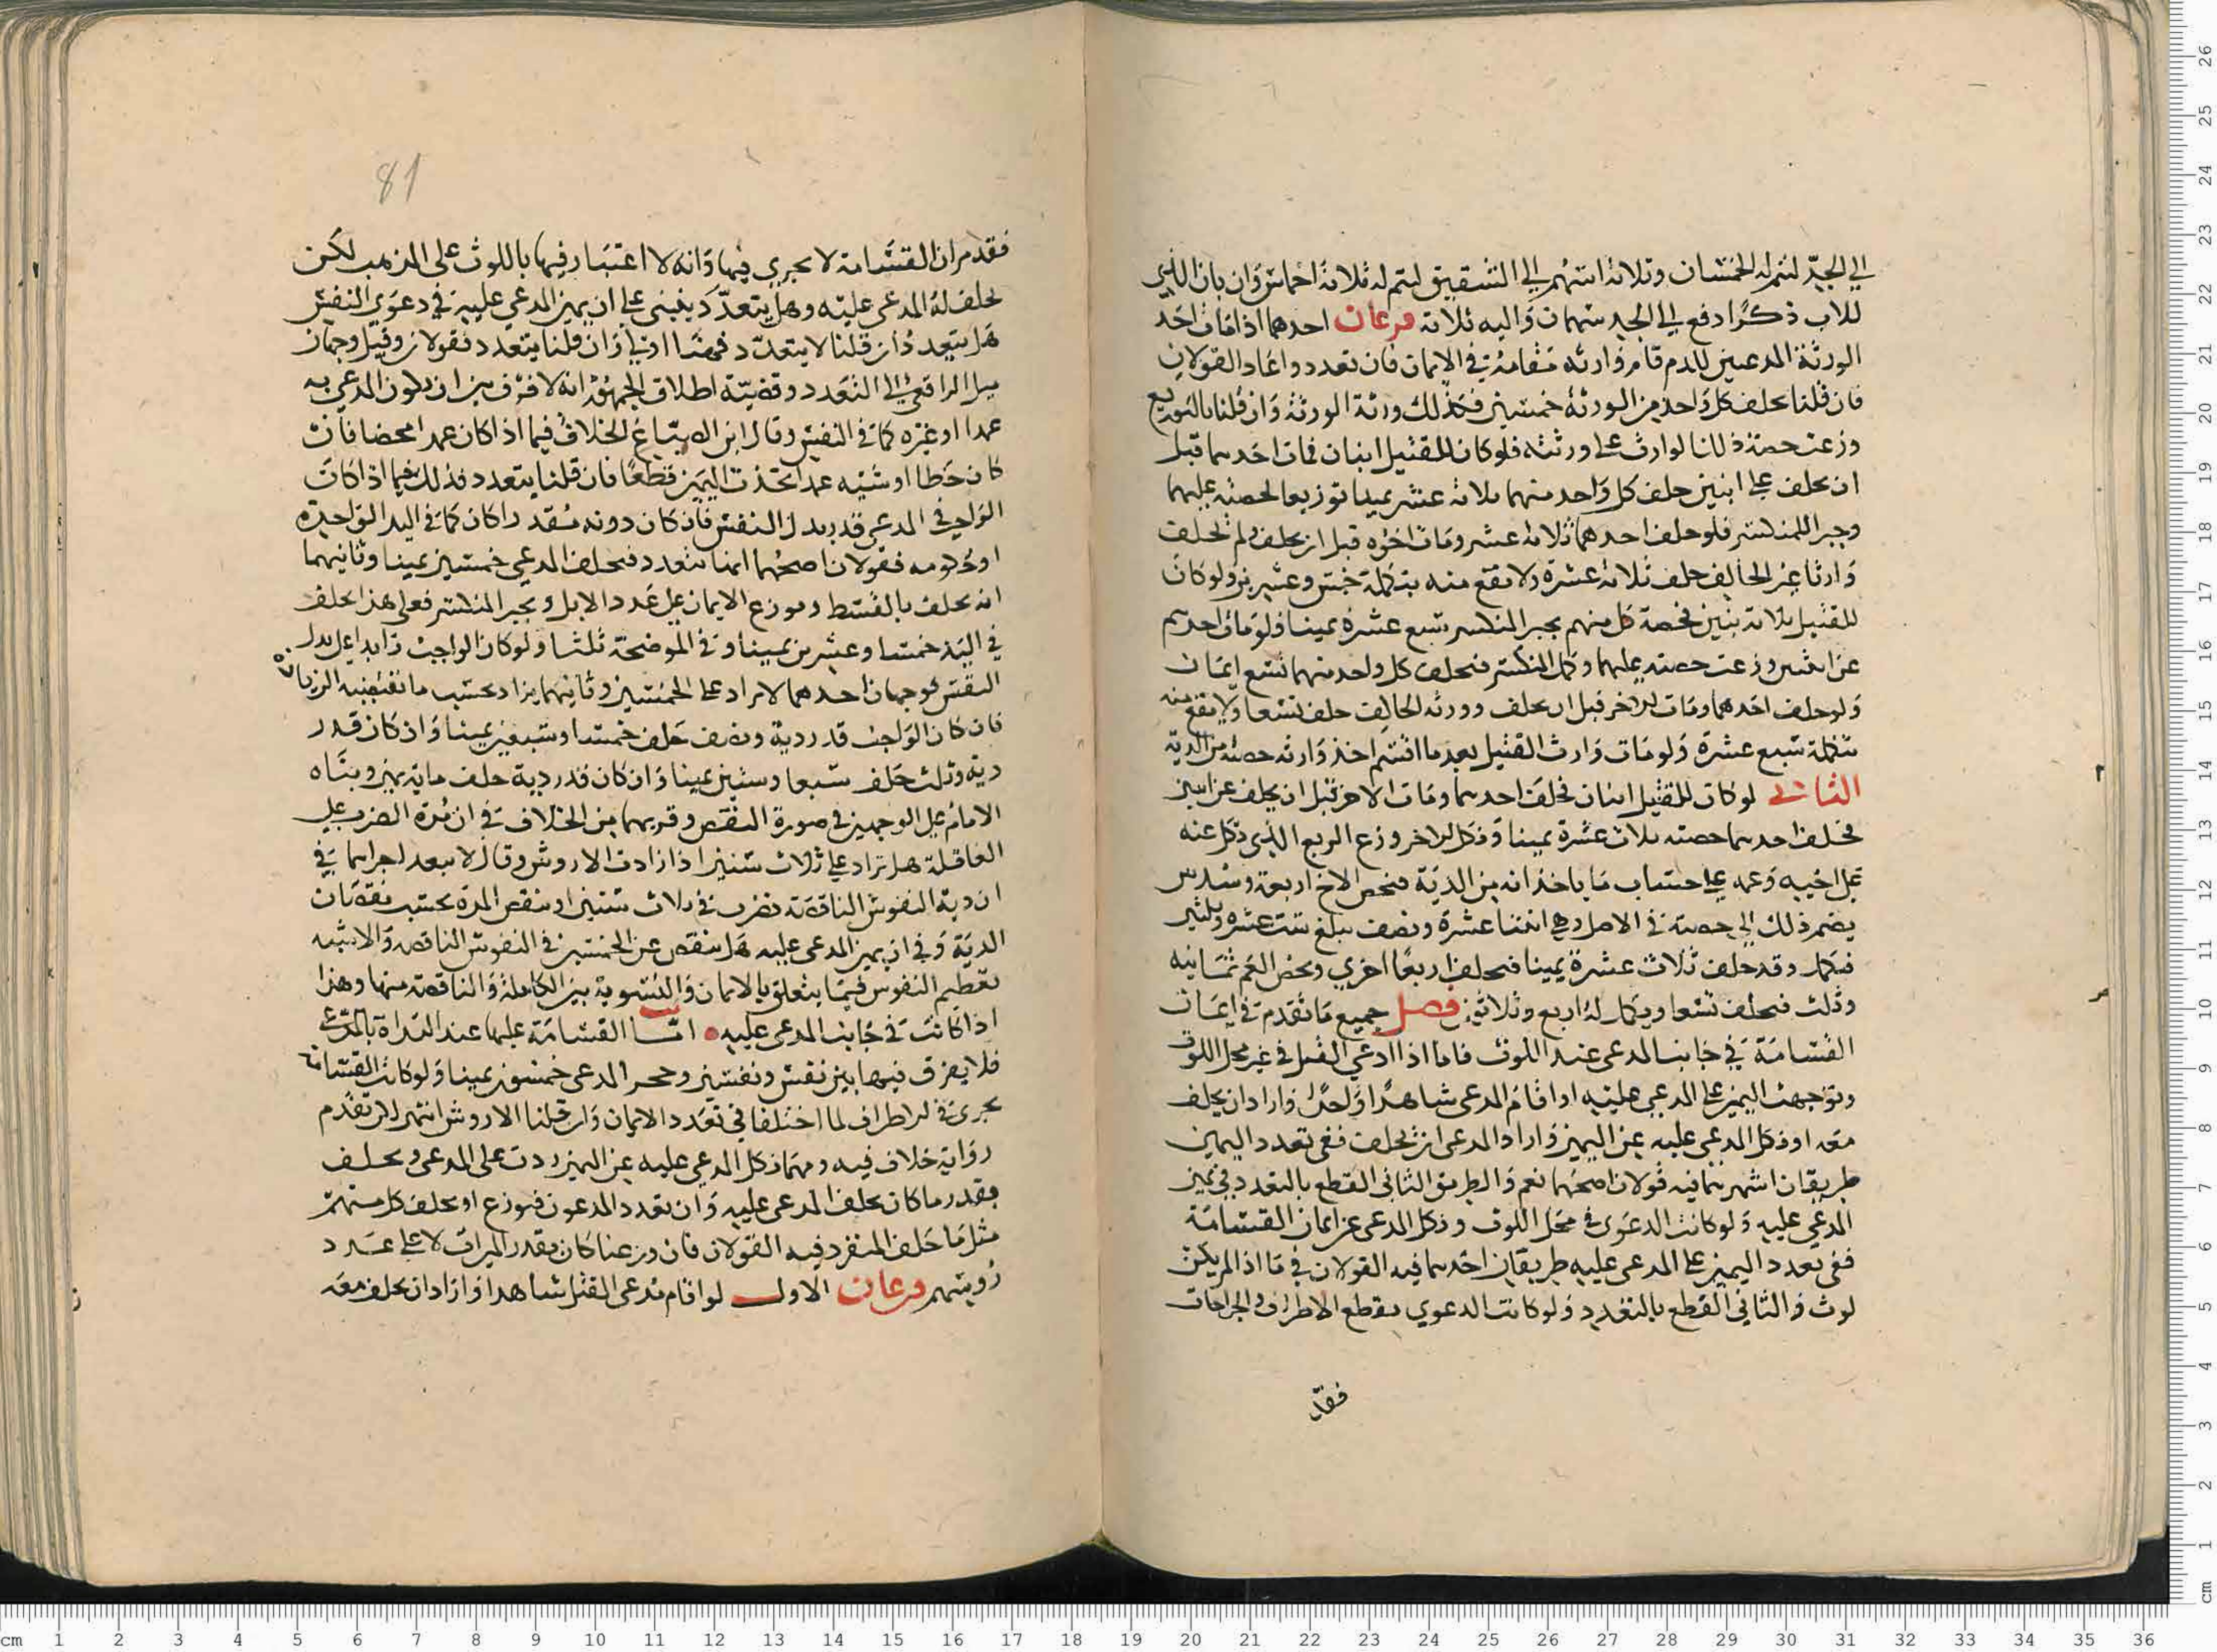 الي الجد ليتم له الخمسان وثلاثة اسهم الي الشقيق ليتم له ثلاثة اخماس وان بان الذي
للاب ذكرا دفع الي الجد سهمان واليه ثلاثة فرعان احدهما اذا مات احد
الورثة المدعين للدم قام وارثه مقامه في الايمان فان تعددوا عاد القولان
فان قلنا يحلف كل واحد من الورثة خمسين فكذلك ورثة الورثة وان قلنا بالتوزيع
وزعت حصة ذلك الوارث علي ورثته فلو كان للقتيل ابنان فمات احدهما قبل
ان يحلف عن ابنين حلف كل واحد منهما ثلاثة عشر يمينا توزيعا لحصته عليهما
وجبرا للمنكسر فلو حلف احدهما ثلاثة عشر ومات اخوه قبل ان يحلف ولم يخلف
وارثا غير الحالف حلف ثلاثة عشرة ولا يقع منه بتكملة خمس وعشرين ولو كان
للقتيل ثلاثة بنين فحصة كل منهم بجبر المنكسر سبع عشرة يمينا فلو مات احدهم
عن ابنين وزعت حصته عليهما وكمل المنكسر فيحلف كل واحد منهما تسع ايمان
ولو حلف احدهما ومات الاخر قبل ان يحلف وورثه الحالف حلف تسعا ولا يقع منه
تكملة سبع عشرة ولو مات وارث القتيل بعد ما اقسم اخذ وارثه حصته من الدية
الثاني لو كان للقتيل ابنان فحلف احدهما ومات الاخر قبل ان يحلف عن ابنين
فحلف احدهما حصته ثلاث عشرة يمينا ونكل الاخر وزع الربع الذي نكل عنه
علي اخيه وعمه علي حساب ما ياخذانه من الدية فيخص الاخ اربعة وسدس
يضم ذلك الي حصته في الاصل وهي اثنتا عشرة ونصف يبلغ ست عشرة وثلثين
فيكمل وقد حلف ثلاث عشرة يمينا فيحلف اربعا اخري ويخص العم ثمانيه
وثلث فيحلف تسعا ويكمل له اربع وثلاثون فصل جميع ما تقدم في ايمان
القسامة في جانب المدعي عند اللوث فاما اذا ادعي القتل في غير محل اللوث
وتوجهت اليمين علي المدعي عليه او اقام المدعي شاهدا واحدا واراد ان يحلف
معه او نكل المدعي عليه عن اليمين واراد المدعي ان يحلف ففي تعدد اليمين
طريقان اشهرهما فيه قولان اصحهما نعم والطريق الثاني القطع بالتعدد في يمين
المدعي عليه ولو كانت الدعوي في محل اللوث ونكل المدعي عن ايمان القسامة
ففي تعدد اليمين علي المدعي عليه طريقان احدهما فيه القولان في ما اذا لم يكن
لوث والثاني القطع بالتعدد ولو كانت الدعوي بقطع الاطراف والجراحات
فقد
81
فقد مر ان القسامة لا تجري فيها وانه لا اعتبار فيها باللوث علي المذهب لكن
يحلف له المدعي عليه وهل يتعدد ينبني علي ان يمين المدعي عليه في دعوي النفس
هل يتعدد فان قلنا لا يتعدد فهنا اولي وان قلنا يتعدد فقولان وقيل وجهان
ميل الرافعي الي التعدد وقضية اطلاق الجمهور انه لا فرق بين ان يكون المدعي به
عمدا او غيره كما في النفس وقال ابن الصباغ الخلاف فيما اذا كان عمدا محضا فان
كان خطا او شبه عمد اتحدت اليمين قطعا فان قلنا يتعدد فذلك فيما اذا كان
الواجب في المدعي قدر بدل النفس فان كان دونه مقدرا كان كما في اليد الواحدة
او حكومه فقولان اصحهما انها تتعدد فيحلف المدعي خمسين يمينا وثانيهما
انه يحلف بالقسط وتوزع الايمان علي عدد الابل ويجبر المنكسر فعلي هذا يحلف
في اليد خمسا وعشرين يمينا وفي الموضحة ثلثا ولو كان الواجب زايدا علي بدل
النفس فوجهان احدهما لا يزاد علي الخمسين وثانيهما يزاد بحسب ما تقتضيه الزيادة
فان كان الواجب قدر دية ونصف حلف خمسا وسبعين يمينا وان كان قدر
دية وثلث حلف سبعا وستين يمينا وان كان قدر دية حلف ماية يمين وبناه
الامام علي الوجهين في صورة النقص وقربهما من الخلاف في ان مدة الضرب علي
العاقلة هل تزاد علي ثلاث سنين اذا زادت الاروش وقال لا يبعد اجراهما في
ان دية النفوس الناقصة تضرب في ثلاث سنين او ينقص المدة بحسب نقصان
الدية وفي ان يمين المدعي عليه هل ينقص عن الخمسين في النفوس الناقصة والاشبه
تعظيم النفوس فيما يتعلق بالايمان والتسوية بين الكاملة والناقصة منها وهذا
اذا كانت في جانب المدعي عليه اما القسامة عليها عند البداة بالمدعي
فلا يفرق فيها بين نفس ونفسين المدعي خمسون يمينا ولو كانت القسامة
تجري في الاطراف لما اختلفا في تعدد الايمان وان قلنا الاروش انتهي لكن تقدم
رواية خلاف فيه ومهما نكل المدعي عليه عن اليمين ردت علي المدعي ويحلف
بقدر ما كان يحلف المدعي عليه وان تعدد المدعون فيوزع او يحلف كل منهم
مثل ما حلف المنفرد فيه القولان فان وزعنا كان بقدر الميراث لا علي عدد
رؤسهم فرعان الاول لو اقام مدعي القتل شاهدا واراد ان يحلف معه